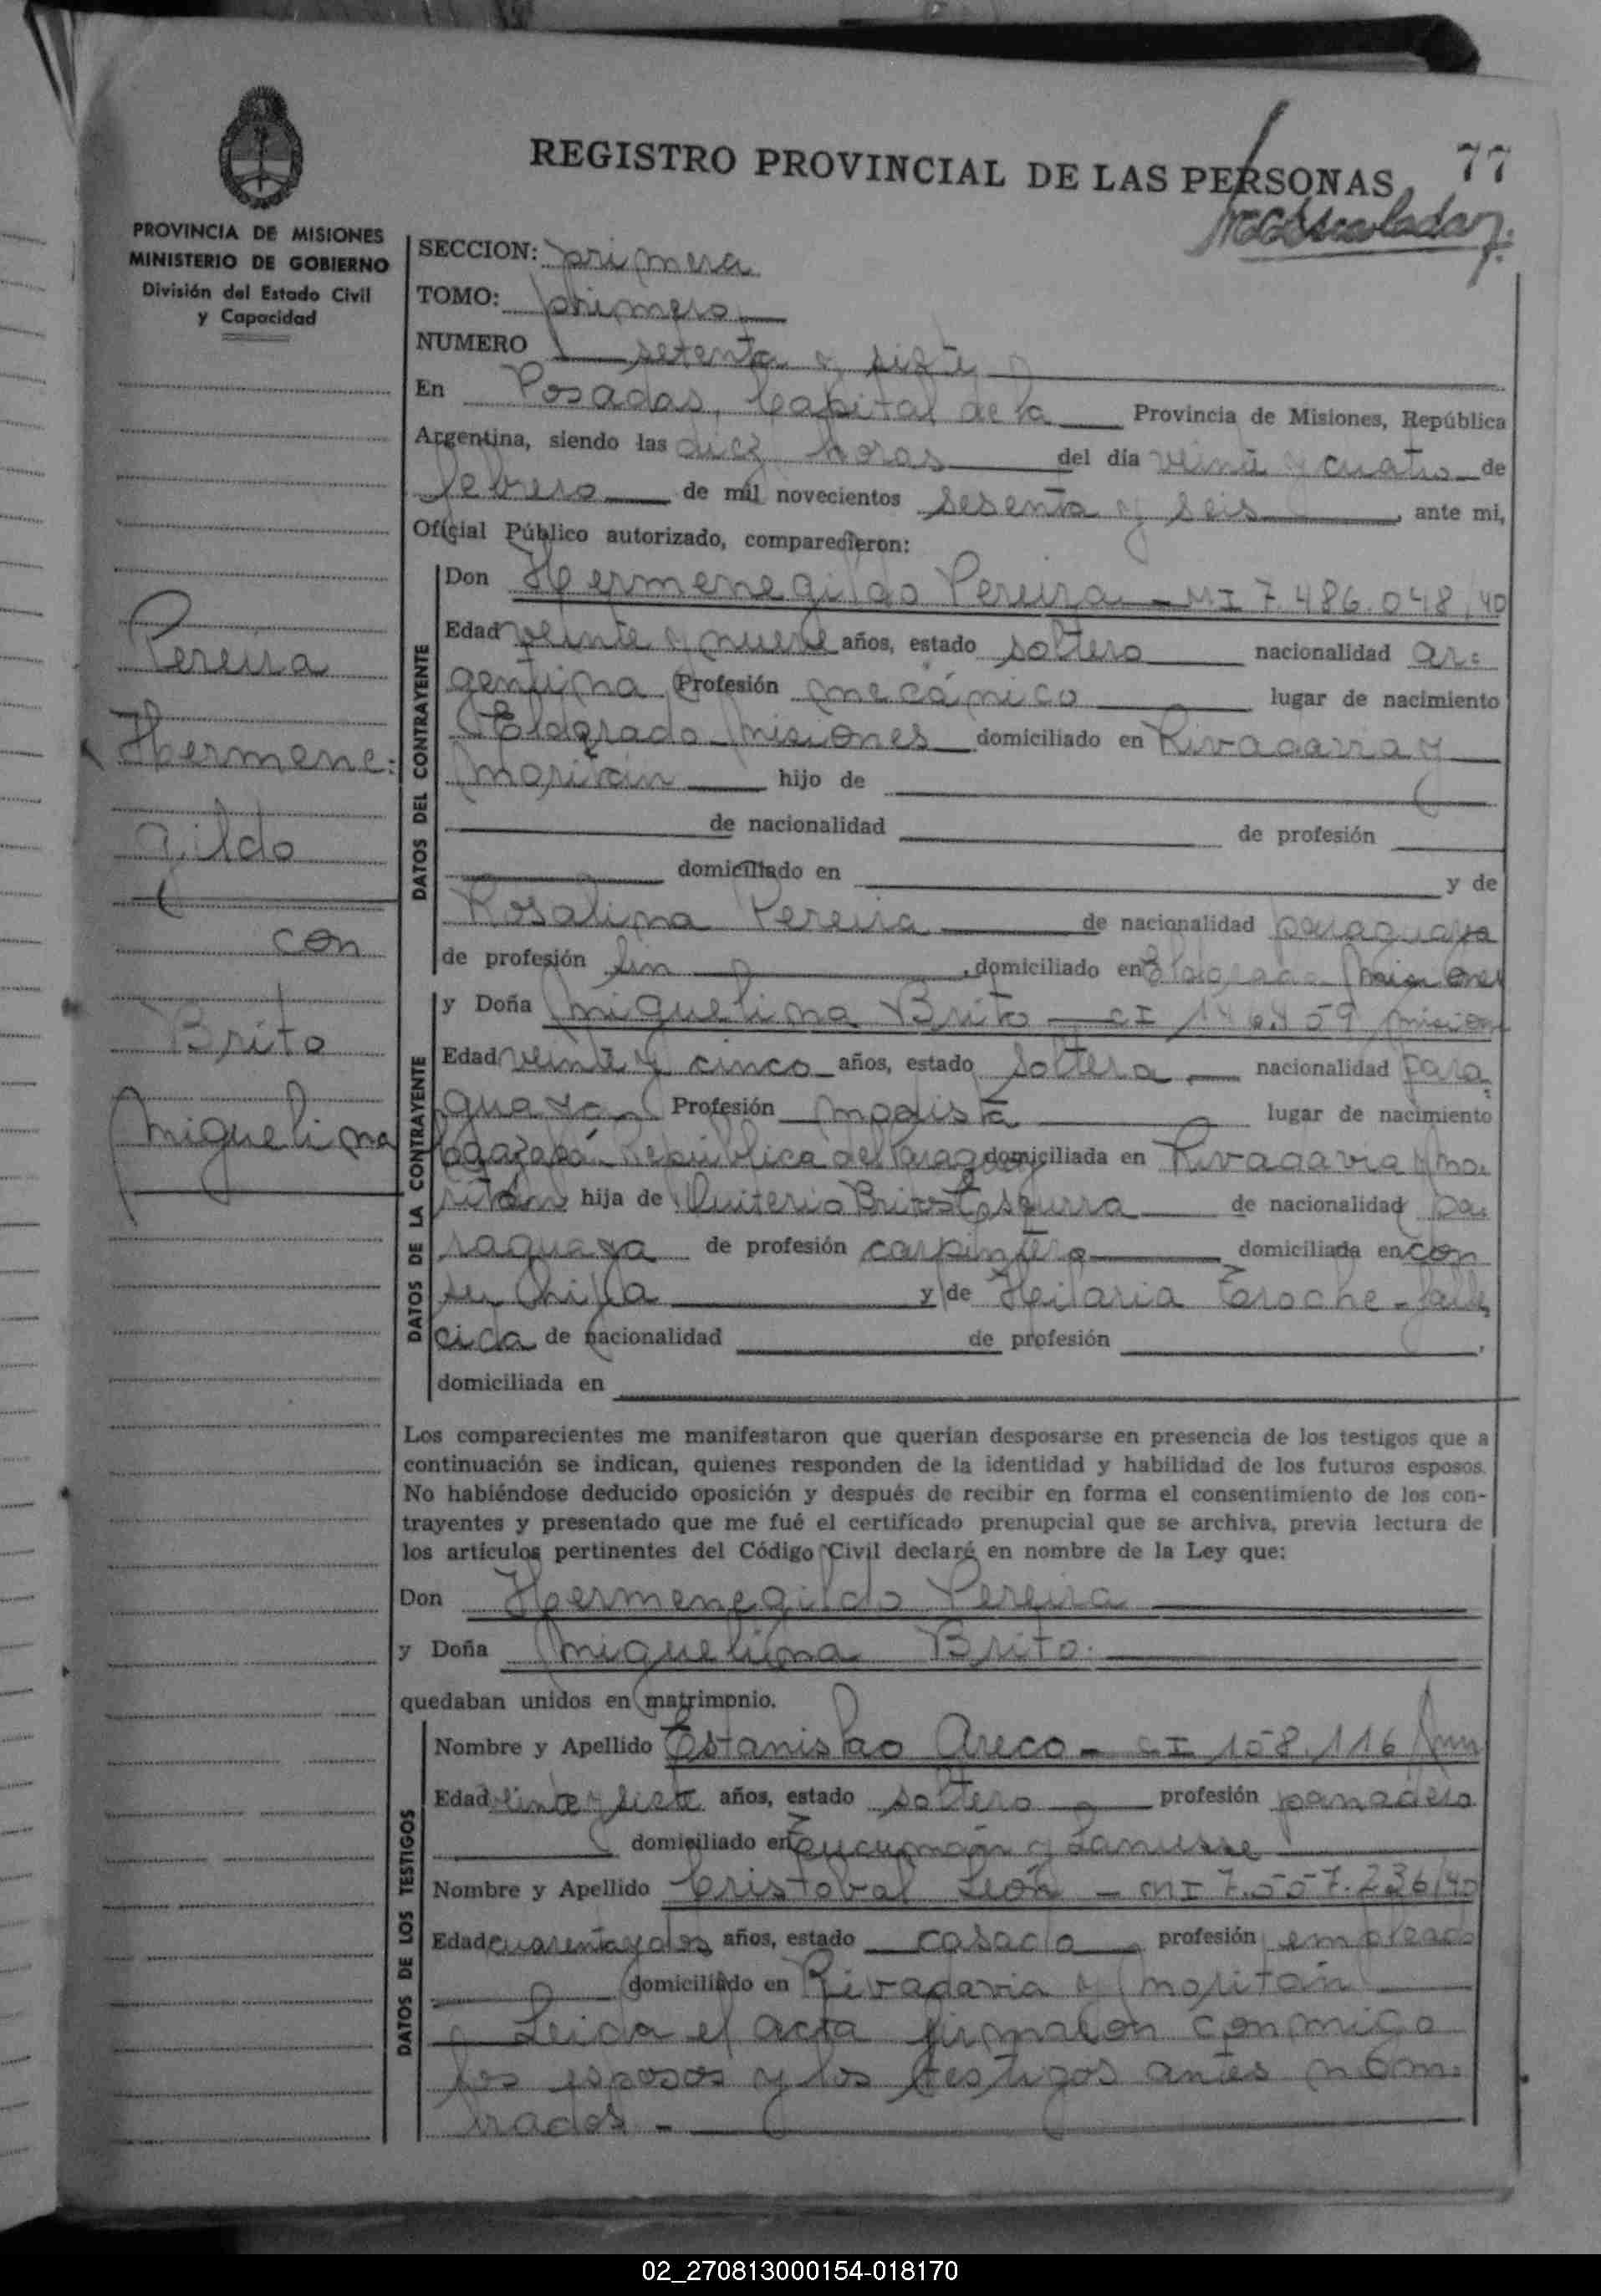 REGISTRO PROVINCIAL DE LAS PERSONAS 77
PROVINCIA DE MISIONES
MINISTERIO DE GOBIERNO
División del Estado Civil
y Capacidad
SECCION: primera
TOMO: primero
NUMERO setenta y siete
En Posadas, Capital de la Provincia de Misiones, República
Argentina, siendo las diez horas del día veinte y cuatro de
febrero de mil novecientos sesenta y seis, ante mi,
Oficial Público autorizado, comparecieron:
Pereira
Hermene:
gildo
con
Brito
Miguelina
DATOS DEL CONTRAYENTE
Don Hermenegildo Pereira - MI 7.486.048
Edad veinte y nueve años, estado soltero nacionalidad ar=
gentina Profesión mecánico lugar de nacimiento
Eldorado Misiones domiciliado en Rivadavia y
hijo de
de nacionalidad de profesión
domiciliado en y de
Rosalina Pereira de nacionalidad paraguaya
de profesión sin, domiciliado en Eldorado Misiones
DATOS DE LA CONTRAYENTE
y Doña Miguelina Brito - CI
Edad veinte y cinco años, estado soltera nacionalidad para
guaya Profesión modista lugar de nacimiento
República del Paraguay domiciliada en Rivadavia y
hija de Brito de nacionalidad pa
raguaya de profesión carpintero domiciliada en con
su hija y de Hilaria falle
cida de nacionalidad de profesión,
domiciliada en
Los comparecientes me manifestaron que querían desposarse en presencia de los testigos que a
continuación se indican, quienes responden de la identidad y habilidad de los futuros esposos.
No habiéndose deducido oposición y después de recibir en forma el consentimiento de los con-
trayentes y presentado que me fué el certificado prenupcial que se archiva, previa lectura de
los artículos pertinentes del Código Civil declaré en nombre de la Ley que:
Don Hermenegildo Pereira
y Doña Miguelina Brito.
quedaban unidos en matrimonio.
DATOS DE LOS TESTIGOS
Nombre y Apellido Estanislao Areco - CI 108.116
Edad veinte y siete años, estado soltero profesión panadero
domiciliado en Tucumán y Lanusse
Nombre y Apellido Cristobal León - MI 7.557.236
Edad cuarenta y dos años, estado casado, profesión empleado
domiciliado en Rivadavia y Moritán
Leida el acta firmaron conmigo
los esposos y los testigos antes nom=
brados.-
02_270813000154-018170